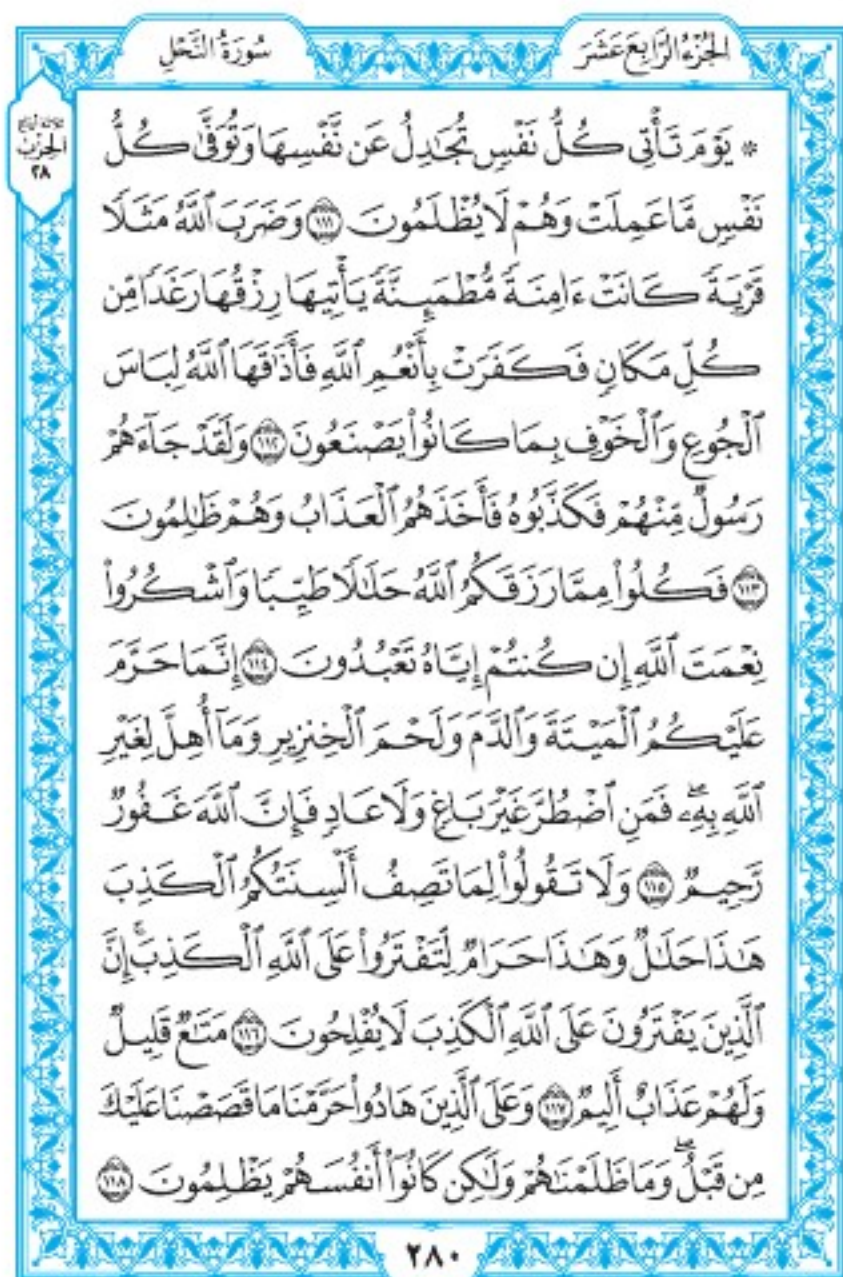 الجُزْءُ الرَّابِعَ عَشَرَ
سُورَةُ النَّحْلِ
الحِزْب
٢٨
۞ يَوْمَ تَأْتِي كُلُّ نَفْسٖ تُجَٰدِلُ عَن نَّفْسِهَا وَتُوَفَّىٰ كُلُّ
نَفْسٖ مَّا عَمِلَتْ وَهُمْ لَا يُظْلَمُونَ ١١١ وَضَرَبَ ٱللَّهُ مَثَلٗا
قَرْيَةٗ كَانَتْ ءَامِنَةٗ مُّطْمَئِنَّةٗ يَأْتِيهَا رِزْقُهَا رَغَدٗا مِّن
كُلِّ مَكَانٖ فَكَفَرَتْ بِأَنْعُمِ ٱللَّهِ فَأَذَٰقَهَا ٱللَّهُ لِبَاسَ
ٱلْجُوعِ وَٱلْخَوْفِ بِمَا كَانُوا۟ يَصْنَعُونَ ١١٢ وَلَقَدْ جَآءَهُمْ
رَسُولٞ مِّنْهُمْ فَكَذَّبُوهُ فَأَخَذَهُمُ ٱلْعَذَابُ وَهُمْ ظَٰلِمُونَ
١١٣ فَكُلُوا۟ مِمَّا رَزَقَكُمُ ٱللَّهُ حَلَٰلٗا طَيِّبٗا وَٱشْكُرُوا۟
نِعْمَتَ ٱللَّهِ إِن كُنتُمْ إِيَّاهُ تَعْبُدُونَ ١١٤ إِنَّمَا حَرَّمَ
عَلَيْكُمُ ٱلْمَيْتَةَ وَٱلدَّمَ وَلَحْمَ ٱلْخِنزِيرِ وَمَآ أُهِلَّ لِغَيْرِ
ٱللَّهِ بِهِۦۖ فَمَنِ ٱضْطُرَّ غَيْرَ بَاغٖ وَلَا عَادٖ فَإِنَّ ٱللَّهَ غَفُورٞ
رَّحِيمٞ ١١٥ وَلَا تَقُولُوا۟ لِمَا تَصِفُ أَلْسِنَتُكُمُ ٱلْكَذِبَ
هَٰذَا حَلَٰلٞ وَهَٰذَا حَرَامٞ لِّتَفْتَرُوا۟ عَلَى ٱللَّهِ ٱلْكَذِبَۚ إِنَّ
ٱلَّذِينَ يَفْتَرُونَ عَلَى ٱللَّهِ ٱلْكَذِبَ لَا يُفْلِحُونَ ١١٦ مَتَٰعٞ قَلِيلٞ
وَلَهُمْ عَذَابٌ أَلِيمٞ ١١٧ وَعَلَى ٱلَّذِينَ هَادُوا۟ حَرَّمْنَا مَا قَصَصْنَا عَلَيْكَ
مِن قَبْلُۖ وَمَا ظَلَمْنَٰهُمْ وَلَٰكِن كَانُوٓا۟ أَنفُسَهُمْ يَظْلِمُونَ ١١٨
٢٨٠